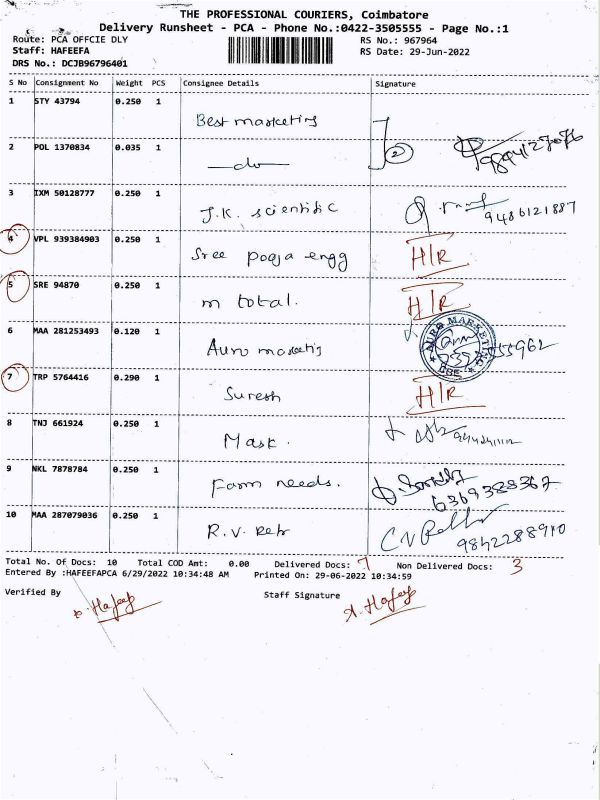 THE PROFESSIONAL COURIERS, Coimbatore
Delivery Runsheet - PCA - Phone No.:0422-3505555 - Page No.:1
Route: PCA OFFCIE DLY
RS No.: 967964
Staff: HAFEEFA
RS Date: 29-Jun-2022
DRS No.: DCJB96796401
S No Consignment No Weight PCS Consignee Details Signature
1 STY 43794 0.250 1 Best marketing
2 POL 1370834 0.035 1 —do— 2
3 IXM 50128777 0.250 1 J.K. scientific 9486121887
4 VPL 939384903 0.250 1 Sree pooja engg H/R
5 SRE 94870 0.250 1 m total. H/R
6 MAA 281253493 0.120 1 Auro marketig AURO MARKETING
7 TRP 5764416 0.290 1 Suresh H/R
8 TNJ 661924 0.250 1 Mask.
9 NKL 7878784 0.250 1 Farm needs. 6369388367
10 MAA 287079036 0.250 1 R.V. 9842288910
Total No. Of Docs: 10 Total COD Amt: 0.00 Delivered Docs: 7 Non Delivered Docs: 3
Entered By :HAFEEFAPCA 6/29/2022 10:34:48 AM Printed On: 29-06-2022 10:34:59
Verified By Staff Signature